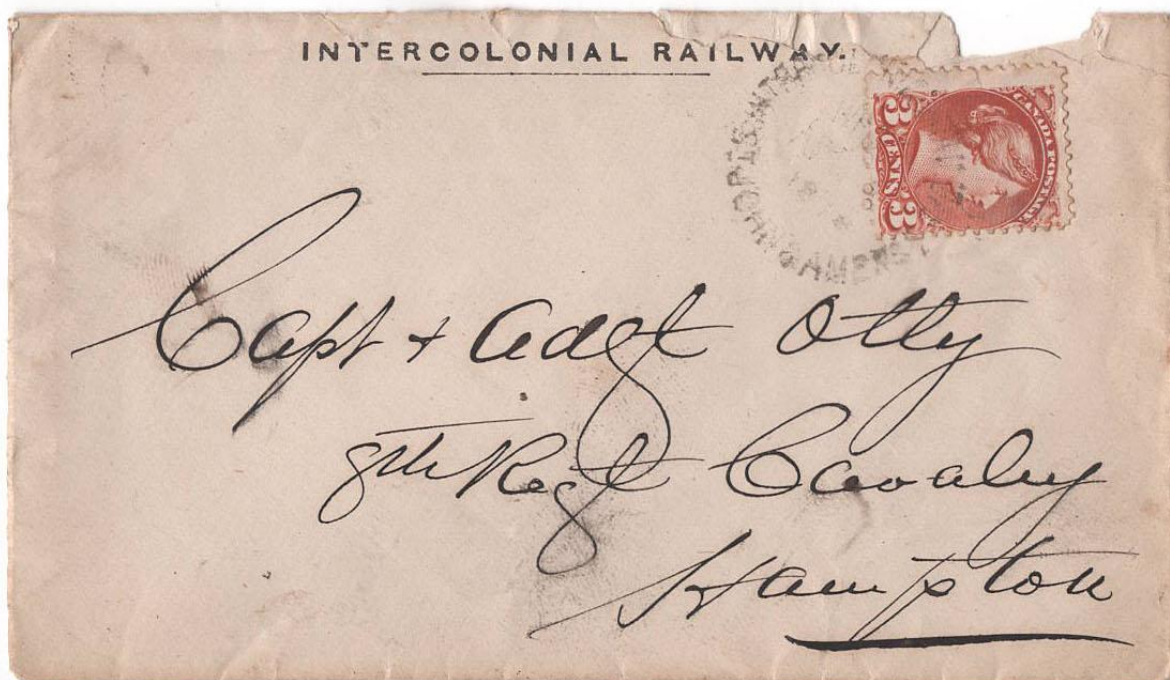 INTERCOLONIAL RAILWAY.
CANADA POSTAGE
3 CENTS 3
Capt + Adgt Otty
8th Regt Cavalry
Hampton